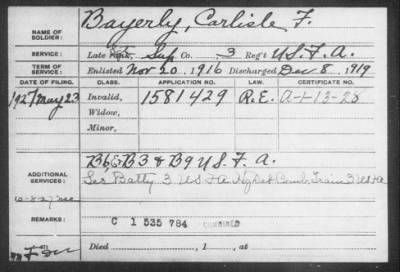 NAME OF SOLDIER: Bayerly, Carlisle F.
SERVICE: Late Sup Co. 3 Reg't U.S.F.A.
TERM OF SERVICE: Enlisted Nov 20, 1916 Discharged Dec 8, 1919
DATE OF FILING. CLASS. APPLICATION NO. LAW. CERTIFICATE NO.
1927 May 23 Invalid, 1581429 R.E. A-1-13-28
Widow,
Minor,
ADDITIONAL SERVICES: B6 & B3 & B9 U.S.F.A.
Batty 3 US FA Hq Det Comb. Train 3 US FA
10-8-27
REMARKS: C 1 535 784
Died , 1 , at